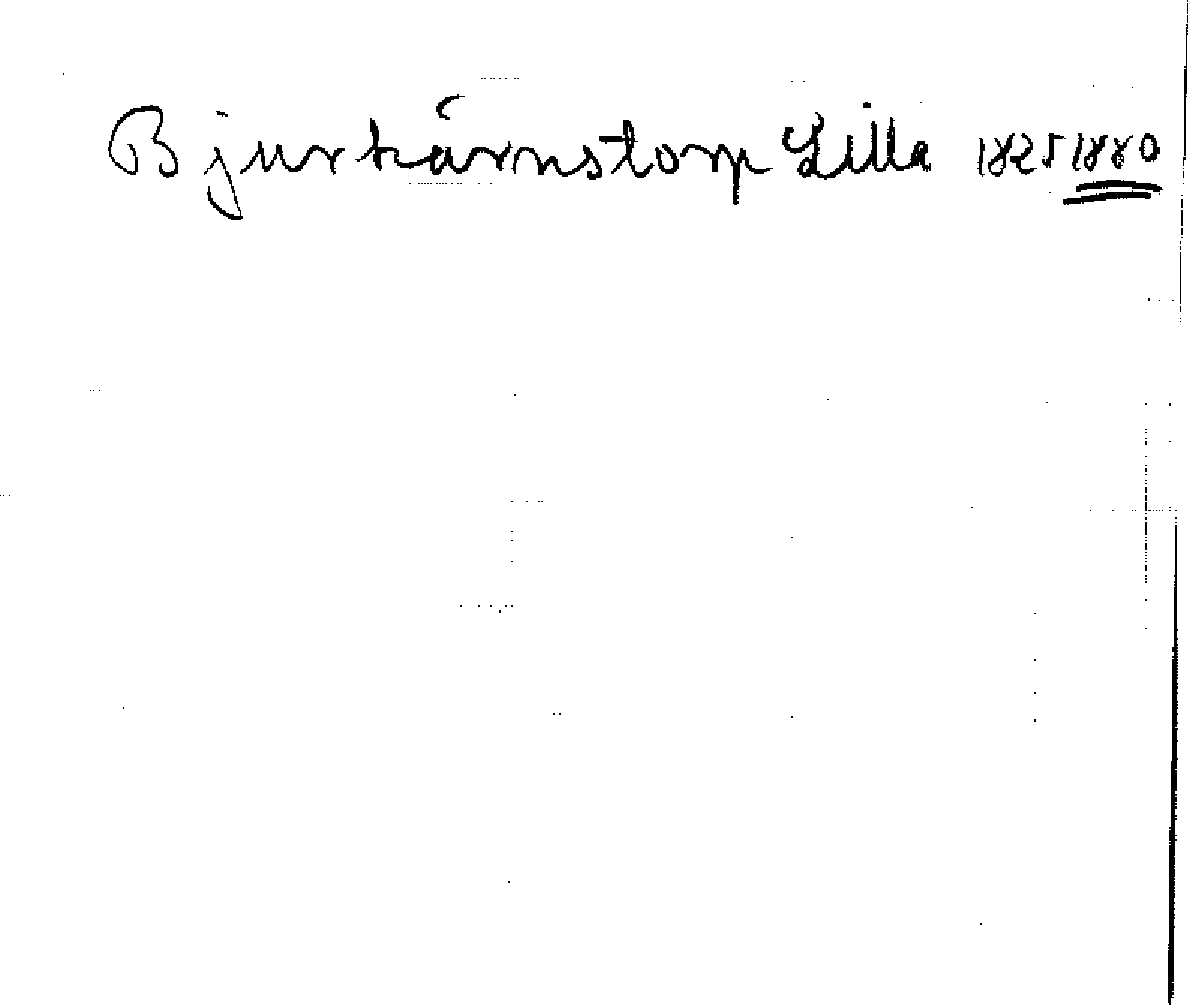 Bjurkärnstorp Lilla 1825 1880